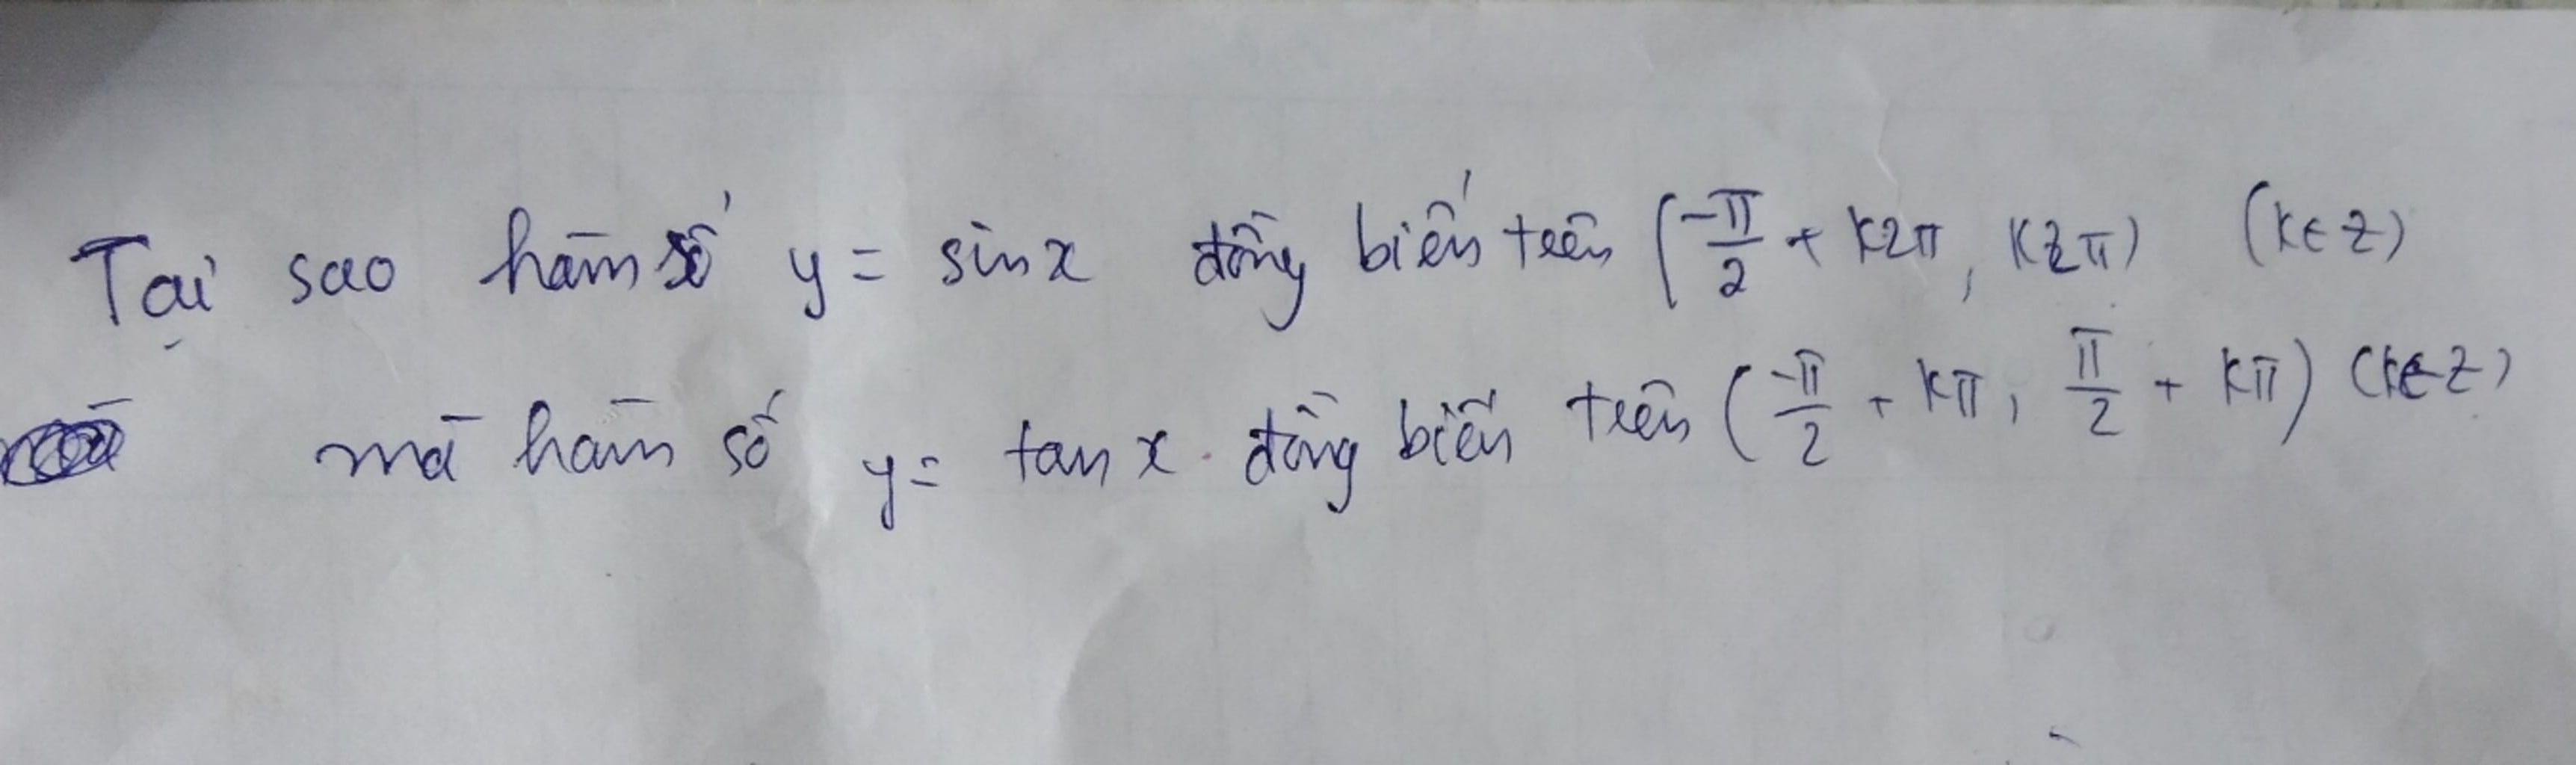 Tại sao hàm số y = sin x đồng biến trên (-π/2 + k2π, k2π) (k∈Z)
mà hàm số y = tan x đồng biến trên (-π/2 + kπ, π/2 + kπ) (k∈Z)